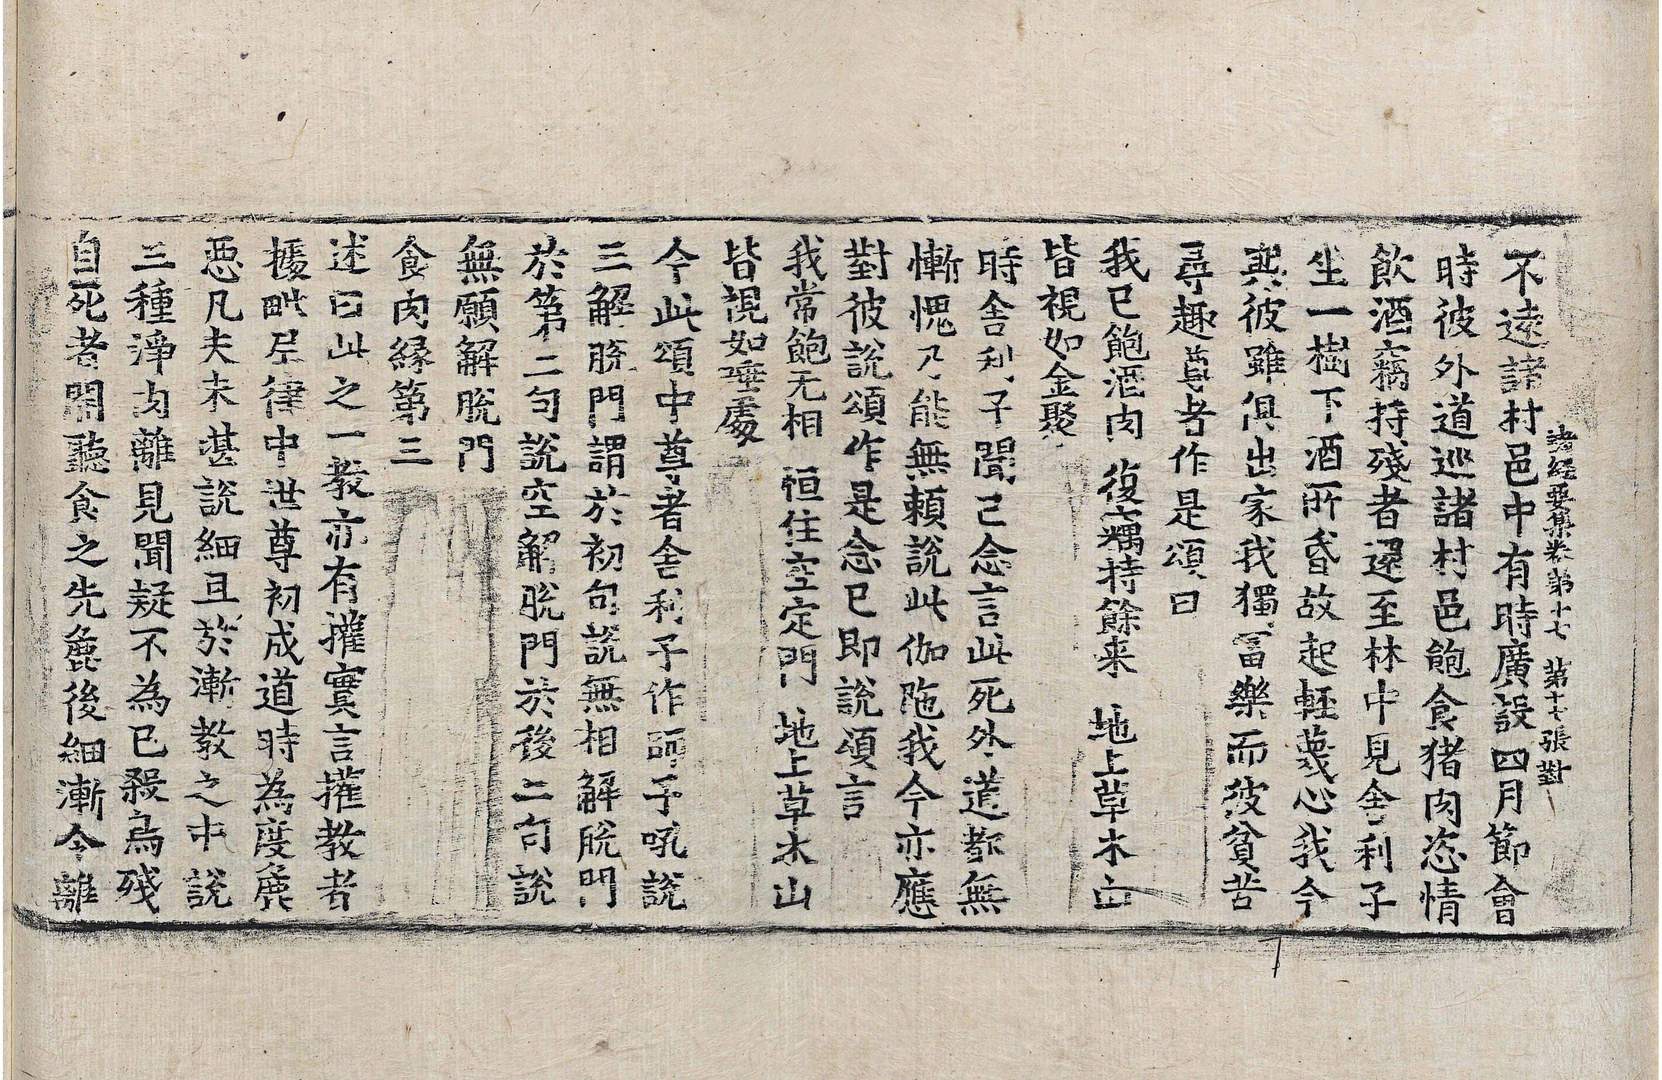 諸經要集卷第十七 第十七張 對
不遠諸村邑中有時廣設四月節會
時彼外道巡諸村邑飽食猪肉恣情
飲酒竊持殘者還至林中見舍利子
坐一樹下酒所昏故起輕蔑心我今
與彼雖俱出家我獨富樂而彼貧苦
尋趣尊者作是頌曰
我已飽酒肉 復竊持餘来 地上草木山
皆視如金聚
時舍利子聞已念言此死外道都無
慚愧乃能無賴說此伽陁我今亦應
對彼說頌作是念已即說頌言
我常飽无相 恒住空定門 地上草木山
皆視如唾處
今此頌中尊者舍利子作師子吼說
三解脫門謂於初句說無相解脫門
於第二句說空解脫門於後二句說
無願解脫門
食肉緣第三
述曰此之一教亦有權實言權教者
據毗尼律中世尊初成道時為度麁
惡凡夫未堪說細且於漸教之中說
三種淨肉離見聞疑不為已殺鳥殘
自死者開聽食之先麁後細漸令離